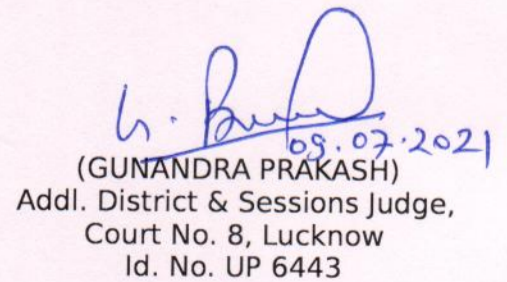 09.07.2021
(GUNANDRA PRAKASH)
Addl. District & Sessions Judge,
Court No. 8, Lucknow
Id. No. UP 6443